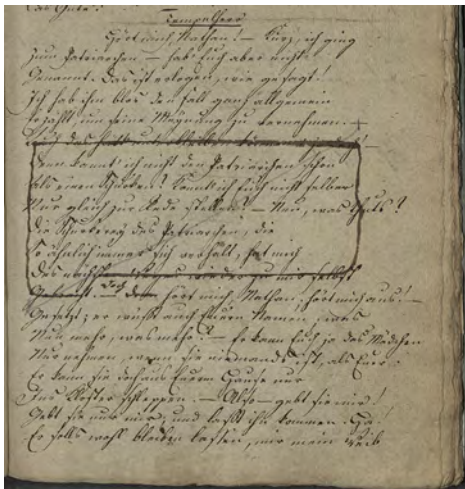 das Gute!
Tempelherr
Hört mich Nathan! — Kurz, ich ging
Zum Patriarchen — hab Euch aber nicht
Genannt. Das ist erlogen, wie gesagt!
Ich hab ihm blos den Fall ganz allgemein
Erzählt, um seine Meynung zu vernehmen. —
Auch das hätt unterbleiben können: ja doch! —
Denn kannt ich nicht den Patriarchen schon
Als einen Schurken? Konnt ich Euch nicht selber
Nur gleich zur Rede stellen? — Nun, was thuts?
Die Schurkerey des Patriarchen, die
So ähnlich immer sich erhält, hat mich
Des nächsten Weges wieder zu mir selbst
Gebracht. — Doch denn hört mich, Nathan; hört mich aus! —
Gesetzt; er wüßt auch Euern Namen, was
Nun mehr, was mehr? — Er kann Euch ja das Mädchen
Nur nehmen, wenn sie niemands ist, als Euer.
Er kann sie doch aus Euerm Hause nur
Ins Kloster schleppen. — Also — gebt sie mir!
Gebt sie nur mir; und laßt ihn kommen. Ha!
Er solls wohl bleiben lassen, mir mein Weib